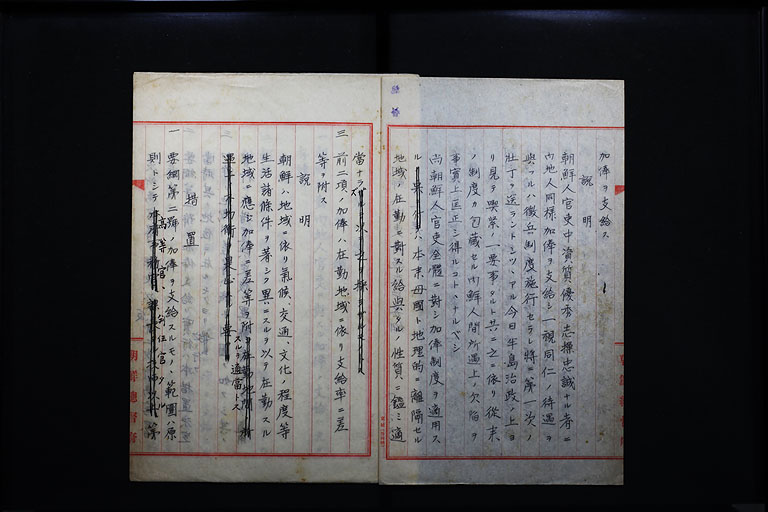 加俸ヲ支給ス
説明
朝鮮人官吏中資質優秀志操忠誠ナル者ニ
内地人同様加俸ヲ支給シ一視同仁ノ待遇ヲ
與フルハ徴兵制度施行セラレ将ニ第一次ノ
壮丁ヲ送ラントシツヽアル今日半島治政ノ上ヨ
リ見テ喫緊ノ一要事タルト共ニ之ニ依リ従来
ノ制度カ包蔵セル内鮮人間所遇上ノ欠陥ヲ
事實上匡正シ得ルコトヽナルベシ
尚朝鮮人官吏全體ニ對シ加俸制度ヲ適用ス
ル
本来母國ト地理的ニ離隔セル
地域ノ在勤ニ對スル給與タルノ性質ニ鑑ミ適
當ナラズ
三 前二項ノ加俸ハ在勤地域ニ依リ支給率ニ差
等ヲ附ス
説明
朝鮮ハ地域ニ依リ氣候、交通、文化ノ程度等
生活諸條件ヲ著シク異ニスルヲ以テ在勤スル
地域ニ應ジ加俸ニ差等ヲ附
スルヲ適當トス
措置
一 要綱第二號ノ加俸ヲ支給スルモノノ範圍ハ原
則トシテ
高等官、判任官
朝鮮總督府